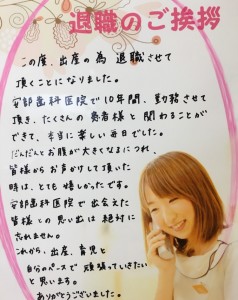 退職のご挨拶
この度、出産の為 退職させて
頂くことになりました。
安部歯科医院で10年間、勤務させて
頂き、たくさんの患者様と関わることが
できて、本当に楽しい毎日でした。
だんだんとお腹が大きくなるにつれ、
皆様からお声かけして頂いた
時は、とても嬉しかったです。
安部歯科医院で出会えた
皆様との思い出は絶対に
忘れません。
これから、出産、育児と
自分のペースで 頑張っていきたい
と思います。
ありがとうございました。